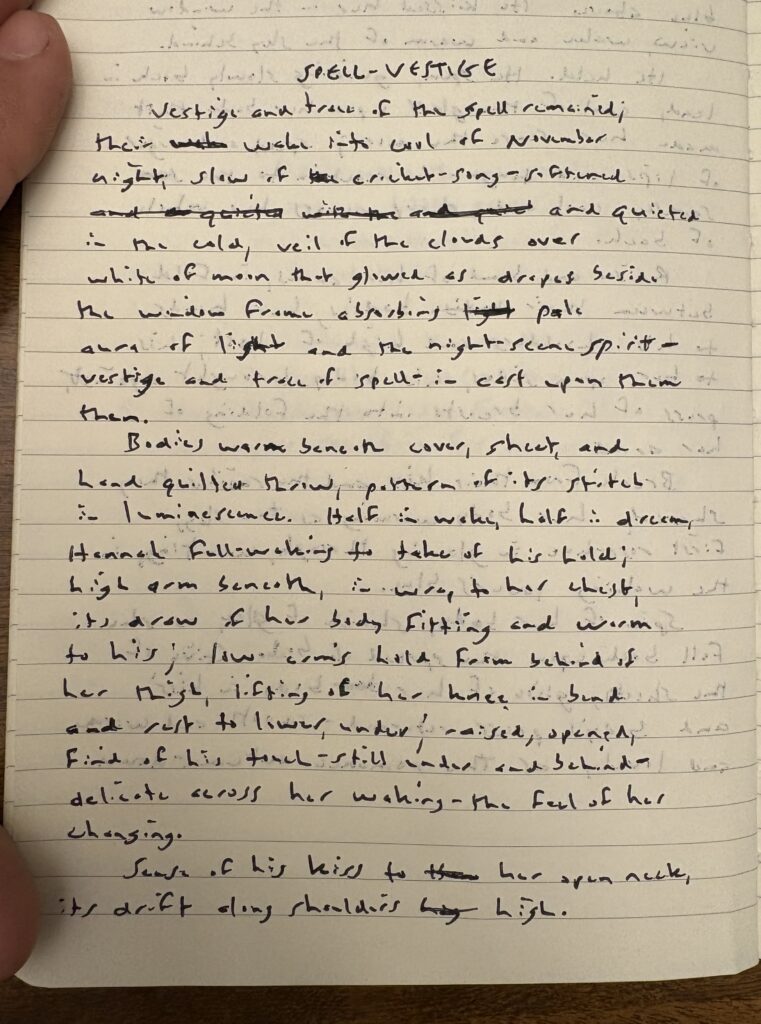 SPELL-VESTIGE
Vestige and trace of the spell remained;
their wake into cool of November
night, slow of cricket-song-softened
and quieted
in the cold, veil of the clouds over
white of moon that glowed as drapes beside
the window frame absorbing light pale
aura of light and the night-scene spirit-
vestige and trace of spell-in cast upon them
them.
Bodies warm beneath cover, sheet, and
hand quilted throw, pattern of its stitch
in luminescence. Half in wake, half in dream,
Hannah full-waking to take of his hold;
high arm beneath, in wrap to her chest,
its draw of her body fitting and warm
to his; low arm's hold from behind of
her thigh, lifting of her knee in bend
and rest to lower, under; raised, opened,
find of his touch-still under and behind-
delicate across her waking-the feel of her
changing.
Sense of his kiss to her open neck,
its drift along shoulders high.